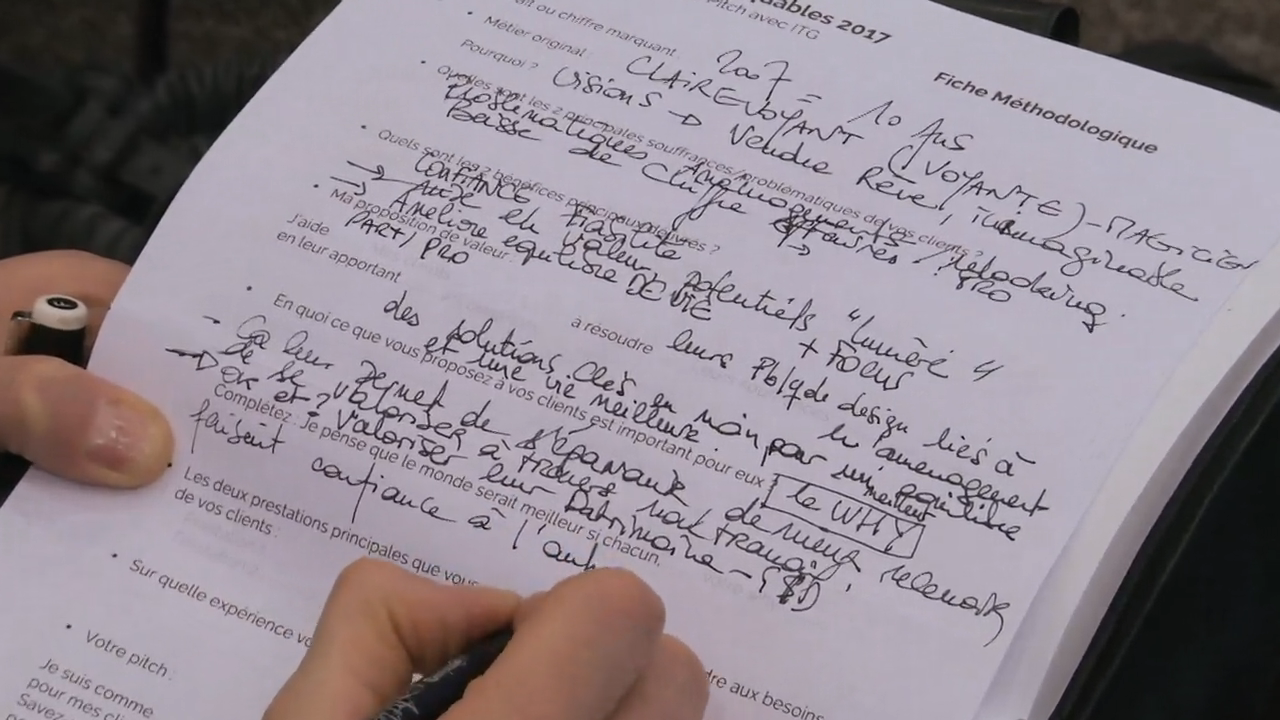 uables 2017
pitch avec ITG
Fiche Méthodologique
ait ou chiffre marquant : 2007 = 10 Ans
Métier original : CLAIREVOYANT (VOYANTE) - MAGICIEN
Pourquoi ? Visions → Vendre Rêve, inimaginable
Quelles sont les 2 principales souffrances/problématiques de vos clients ?
Problématiques Aménagements / Relooking
Baisse de Chiffre affaires ! PRO
Quels sont les 2 bénéfices principaux délivrés ?
→ CONFIANCE Fiabilité
→ en valeur potentiels "lumière" + FOCUS
Améliore equilibre DE VIE
PART/PRO
Ma proposition de valeur :
J'aide à résoudre leurs Pb de design liés à l'aménagement
en leur apportant des solutions clés en main pour un meilleur equilibre
et une vie meilleure.
En quoi ce que vous proposez à vos clients est important pour eux ? le WHY
- ça leur permet de s'épanouir
de se valoriser à travers mon travail
→ et ? Valoriser leur Patrimoine -
Complétez : Je pense que le monde serait meilleur si chacun,
faisait confiance à l'aut
Les deux prestations principales que vous
dre aux besoins
de vos clients :
Sur quelle expérience vo
Votre pitch :
Je suis comme
pour mes cli
Savez